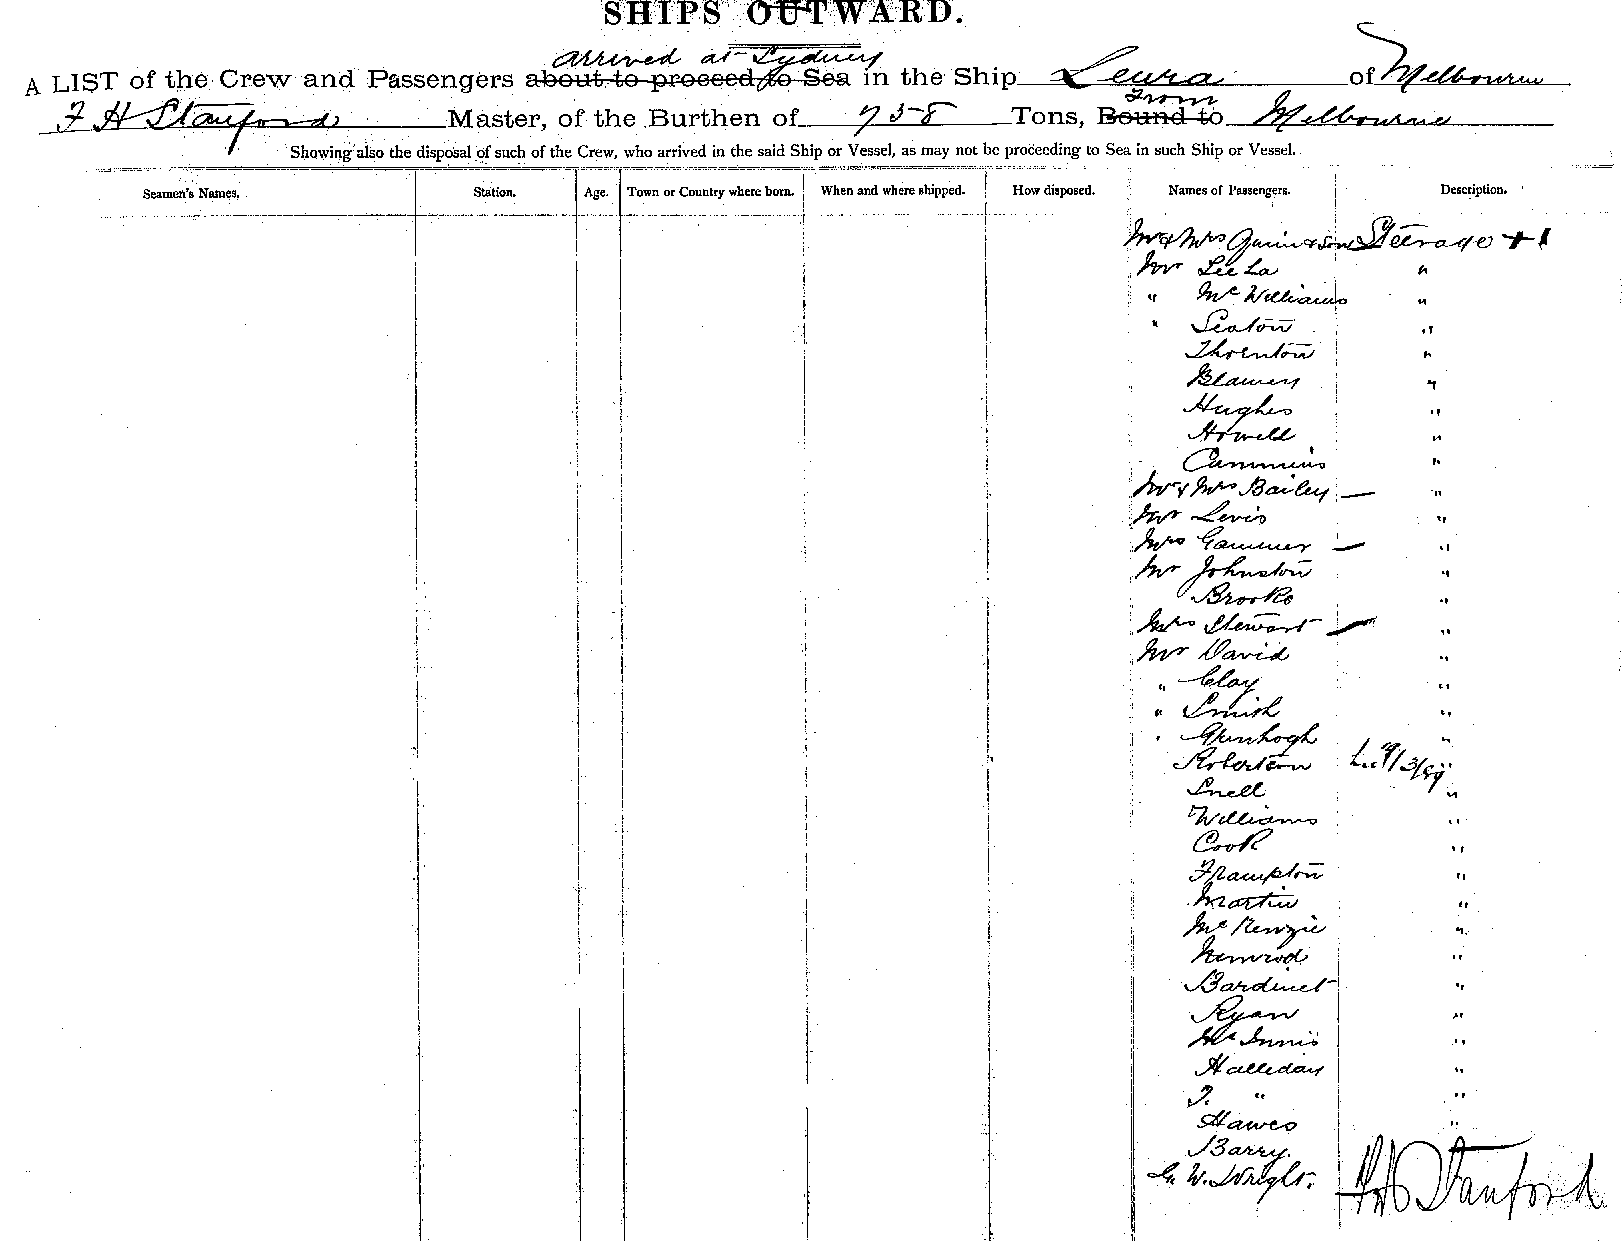 SHIPS OUTWARD.
arrived at Sydney
A LIST of the Crew and Passengers about to proceed to Sea in the Ship Leura of Melbourne
From
F H Stanford Master, of the Burthen of 758 Tons, Bound to Melbourne
Showing also the disposal of such of the Crew, who arrived in the said Ship or Vessel, as may not be proceeding to Sea in such Ship or Vessel.
Seamen's Names. Station. Age. Town or Country where born. When and where shipped. How disposed. Names of Passengers. Description.
Mr & Mrs & Son Steerage + 1
Mr Lee La "
" McWilliams "
" Seaton "
Thornton "
Blamey "
Hughes "
Howell "
Cummins "
Mr & Mrs Bailey — "
Mr Levis "
Mrs Gammer — "
Mr Johnston "
Brooks "
Mrs Stewart — "
Mr David "
" Clay "
" Smith "
" "
Robertson 9/3/89 "
Snell "
Williams "
Cook "
Frampton "
Martin "
McKenzie "
Nimrod "
Bardinet "
Ryan "
McInnis "
Halliday "
T. " "
Hawes "
Barry.
W. Wright.
F H Stanford